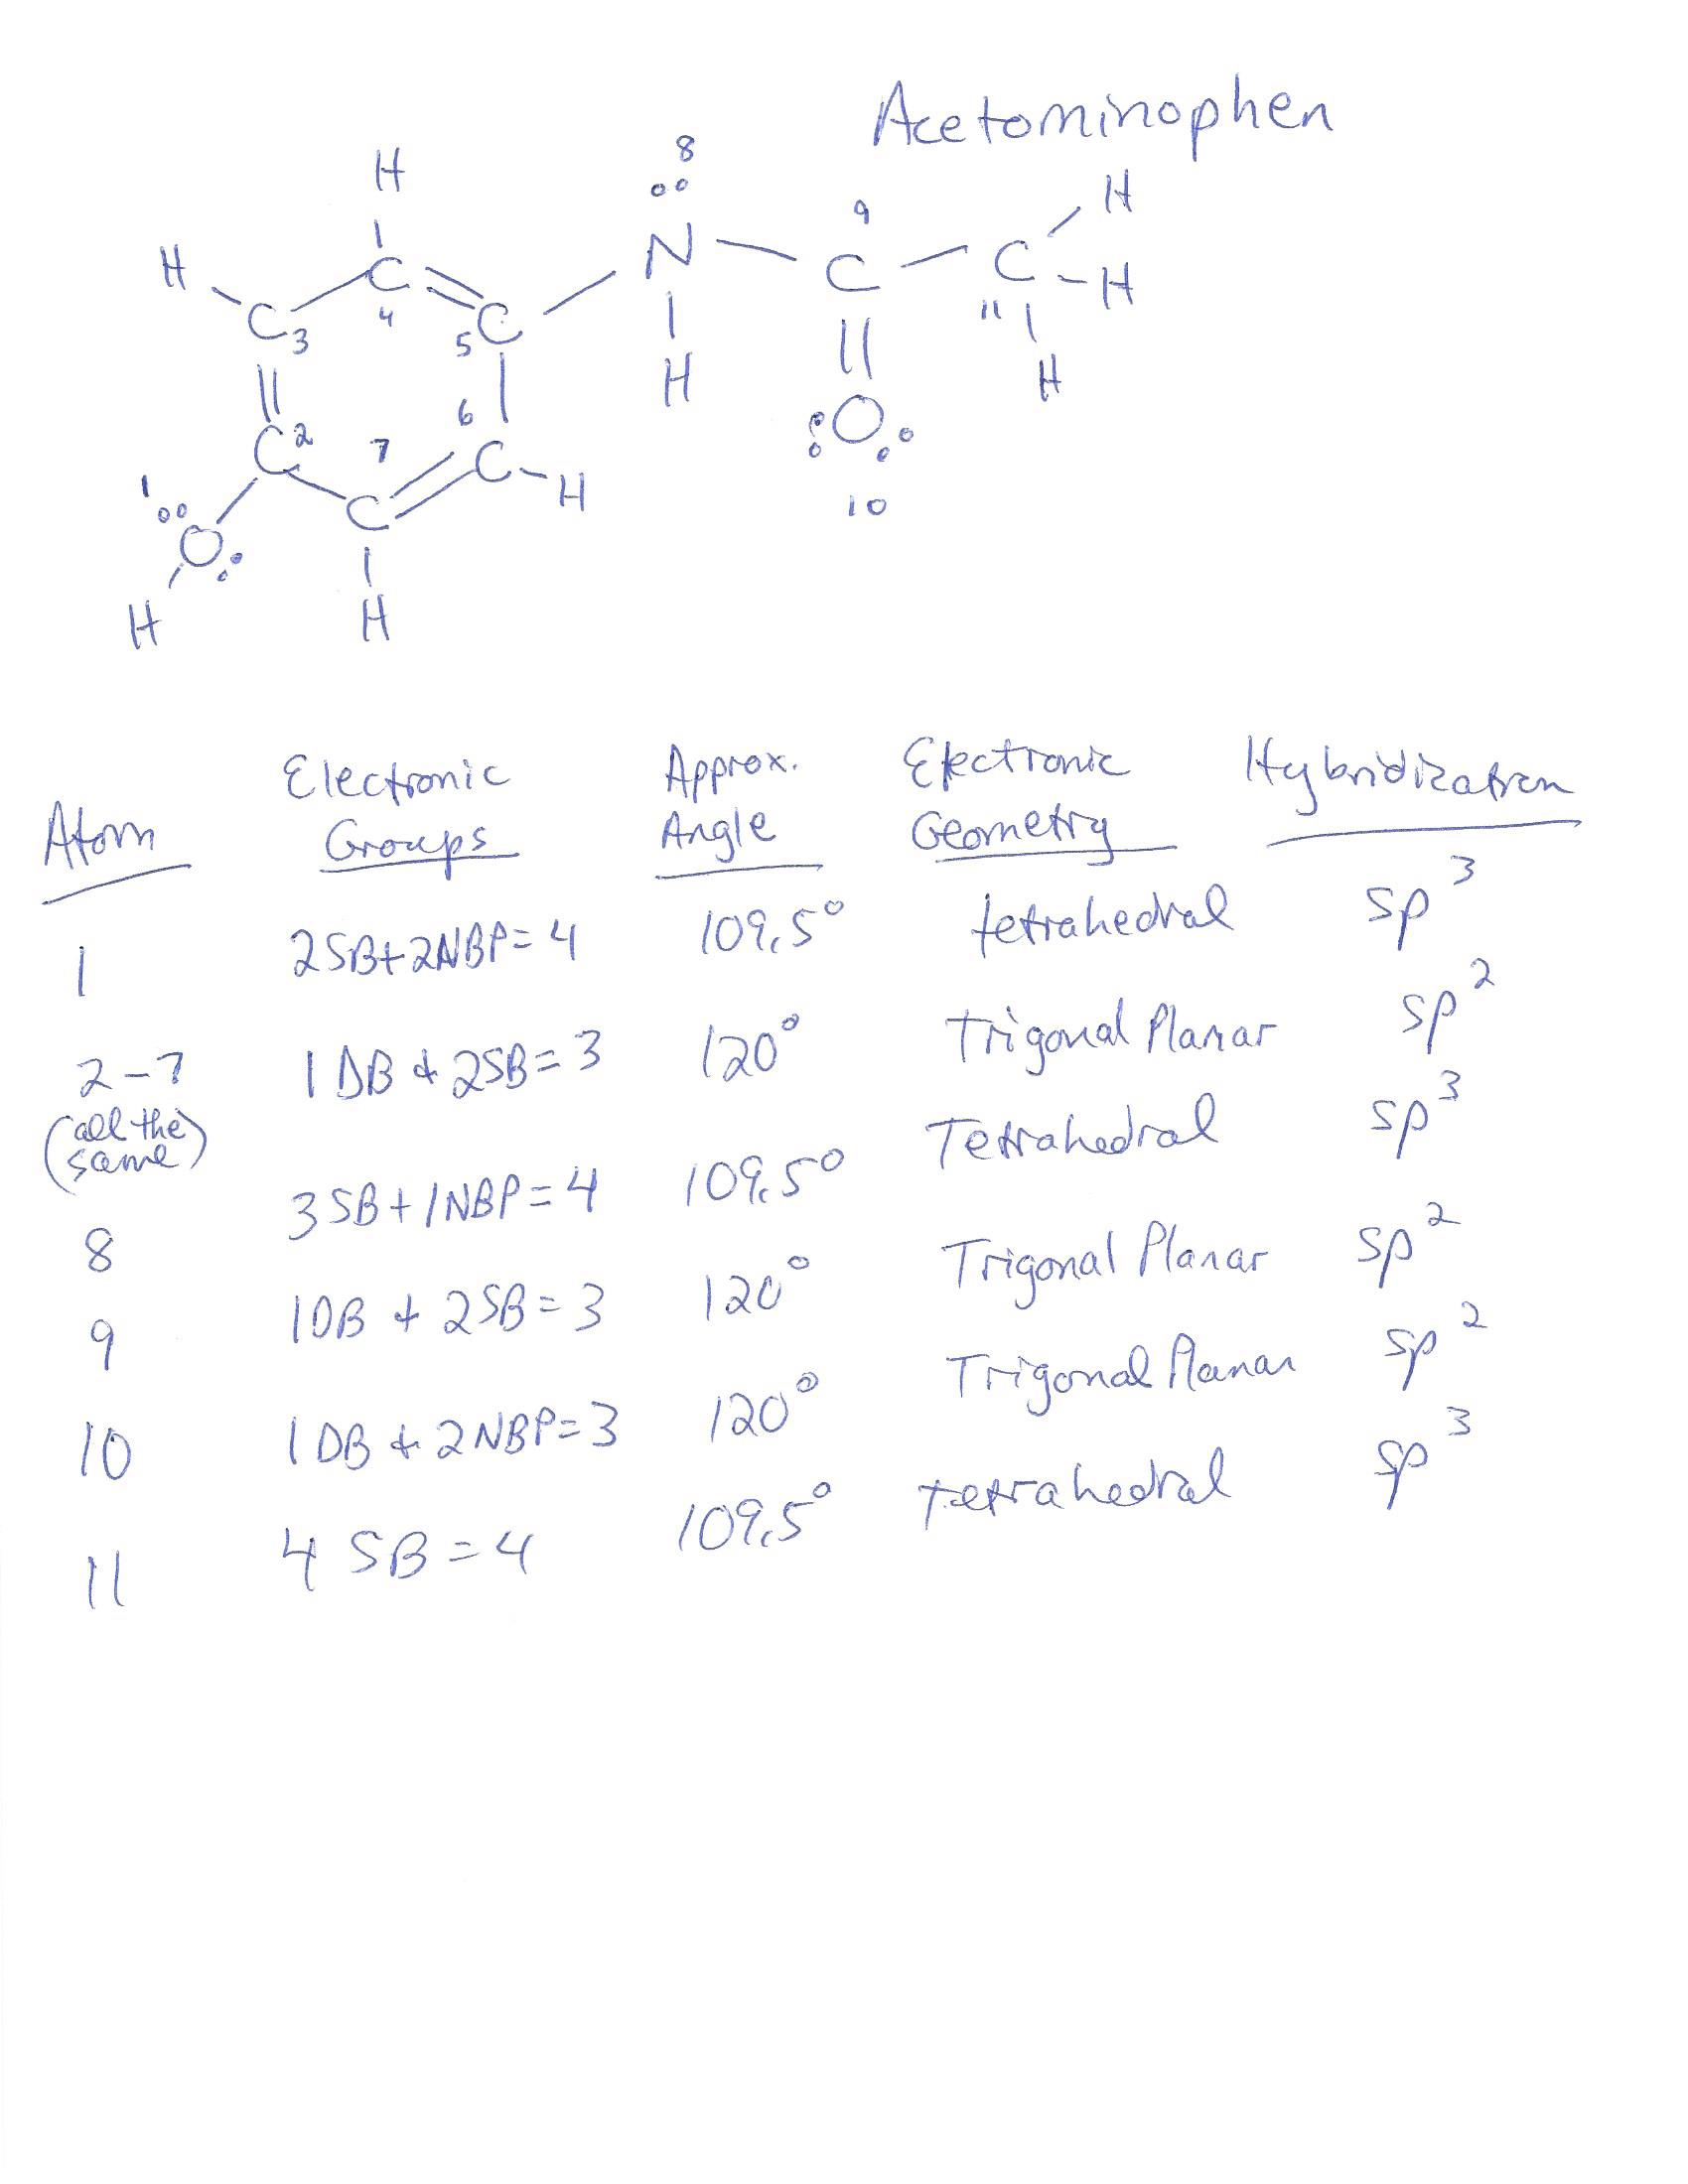 Acetominophen
8
H
H
9
H N C C H
C 4 C 11
C 3 5 C H H
6 O
C 2 7 C H 10
1
O C
H H
Electronic Approx. Electronic Hybridization
Atom Groups Angle Geometry
1 2SB+2NBP=4 109.5° tetrahedral sp³
2-7 1DB + 2SB=3 120° Trigonal Planar sp²
(all the
same)
8 3SB+1NBP=4 109.5° Tetrahedral sp³
9 1DB + 2SB=3 120° Trigonal Planar sp²
10 1DB + 2NBP=3 120° Trigonal Planar sp²
11 4 SB=4 109.5° tetrahedral sp³